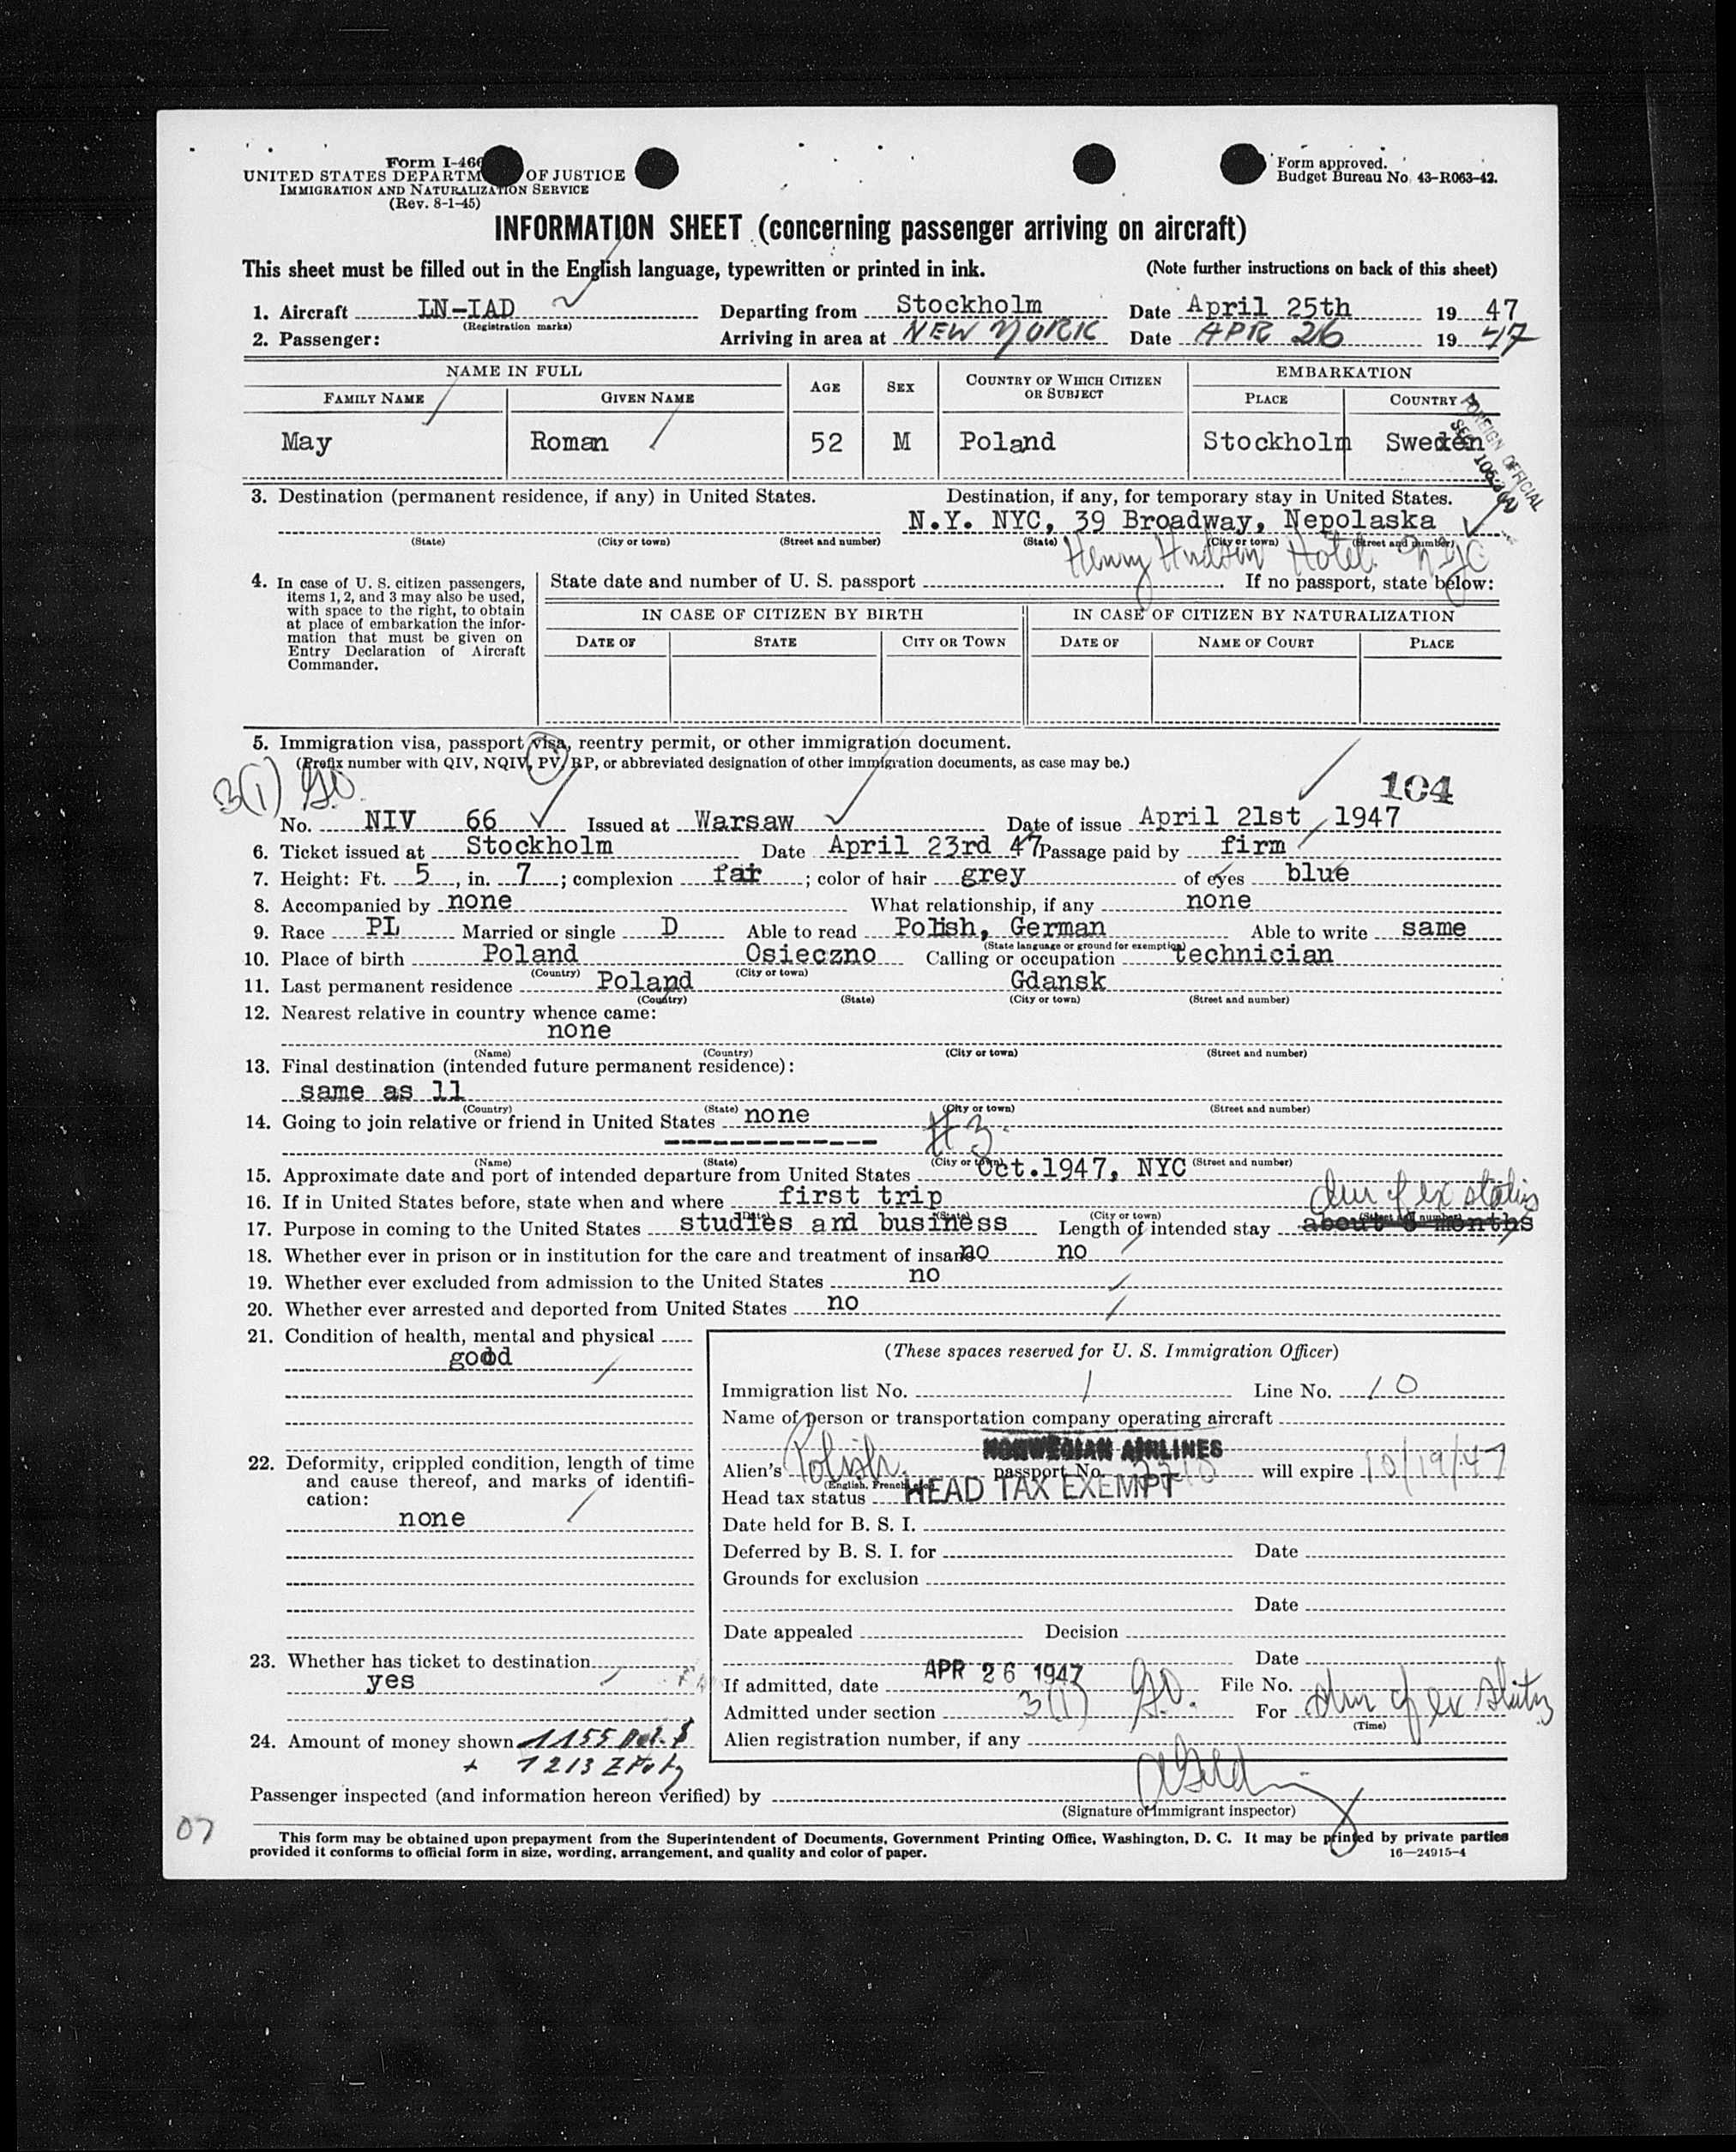 Form I-466
UNITED STATES DEPARTM OF JUSTICE
IMMIGRATION AND NATURALIZATION SERVICE
(Rev. 8-1-45)
Form approved.
Budget Bureau No. 43-R063-42.
INFORMATION SHEET (concerning passenger arriving on aircraft)
This sheet must be filled out in the English language, typewritten or printed in ink. (Note further instructions on back of this sheet)
1. Aircraft LN-IAD Departing from Stockholm Date April 25th 19 47
(Registration marks)
2. Passenger: Arriving in area at NEW YORK Date APR 26 19 47
NAME IN FULL AGE SEX COUNTRY OF WHICH CITIZEN OR SUBJECT EMBARKATION
FAMILY NAME GIVEN NAME PLACE COUNTRY
May Roman 52 M Poland Stockholm Sweden
FOREIGN OFFICIAL
3. Destination (permanent residence, if any) in United States. Destination, if any, for temporary stay in United States.
N.Y. NYC, 39 Broadway, Nepolaska
(State) (City or town) (Street and number) (State) (City or town) (Street and number)
Henry Hudson Hotel NYC
4. In case of U. S. citizen passengers, items 1, 2, and 3 may also be used, with space to the right, to obtain at place of embarkation the information that must be given on Entry Declaration of Aircraft Commander.
State date and number of U. S. passport If no passport, state below:
IN CASE OF CITIZEN BY BIRTH IN CASE OF CITIZEN BY NATURALIZATION
DATE OF STATE CITY OR TOWN DATE OF NAME OF COURT PLACE
5. Immigration visa, passport visa, reentry permit, or other immigration document.
(Prefix number with QIV, NQIV, PV, RP, or abbreviated designation of other immigration documents, as case may be.)
3(1) GO 104
No. NIV 66 Issued at Warsaw Date of issue April 21st, 1947
6. Ticket issued at Stockholm Date April 23rd 47 Passage paid by firm
7. Height: Ft. 5, in. 7; complexion fair; color of hair grey of eyes blue
8. Accompanied by none What relationship, if any none
9. Race PL Married or single D Able to read Polish, German Able to write same
(State language or ground for exemption)
10. Place of birth Poland Osieczno Calling or occupation technician
(Country) (City or town)
11. Last permanent residence Poland Gdansk
(Country) (State) (City or town) (Street and number)
12. Nearest relative in country whence came:
none
(Name) (Country) (City or town) (Street and number)
13. Final destination (intended future permanent residence):
same as 11
(Country) (State) (City or town) (Street and number)
14. Going to join relative or friend in United States none
#3
(Name) (State) (City or town) (Street and number)
15. Approximate date and port of intended departure from United States Oct.1947, NYC
16. If in United States before, state when and where first trip
dur of ex status
(Date) (State) (City or town) (Street and number)
17. Purpose in coming to the United States studies and business Length of intended stay about 6 months
18. Whether ever in prison or in institution for the care and treatment of insane no no
19. Whether ever excluded from admission to the United States no
20. Whether ever arrested and deported from United States no
21. Condition of health, mental and physical
good
22. Deformity, crippled condition, length of time and cause thereof, and marks of identification:
none
23. Whether has ticket to destination
yes
24. Amount of money shown 1155 Dol. $
+ 1213 Zloty
(These spaces reserved for U. S. Immigration Officer)
Immigration list No. 1 Line No. 10
Name of person or transportation company operating aircraft
NORWEGIAN AIRLINES
Alien's Polish passport No. will expire 10/19/47
(English, French, etc.)
Head tax status HEAD TAX EXEMPT
Date held for B. S. I.
Deferred by B. S. I. for Date
Grounds for exclusion
Date
Date appealed Decision
Date
If admitted, date APR 26 1947 File No.
Admitted under section 3(1) GO. For dur of ex status
(Time)
Alien registration number, if any
Passenger inspected (and information hereon verified) by
(Signature of immigrant inspector)
07
This form may be obtained upon prepayment from the Superintendent of Documents, Government Printing Office, Washington, D. C. It may be printed by private parties
provided it conforms to official form in size, wording, arrangement, and quality and color of paper. 16—24915-4